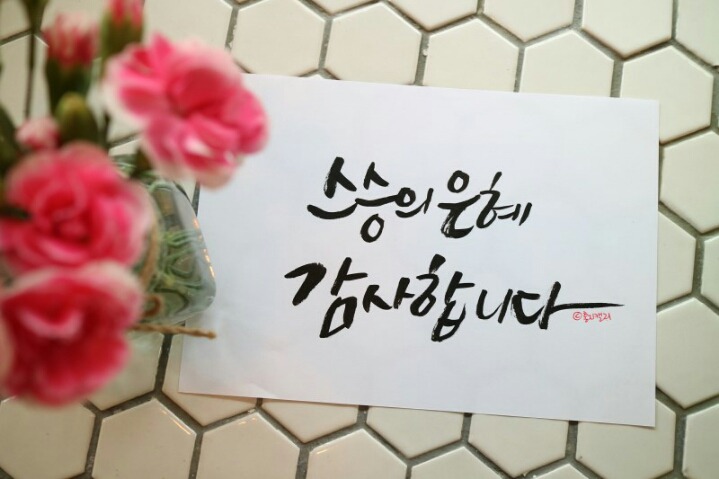 스승의 은혜
감사합니다